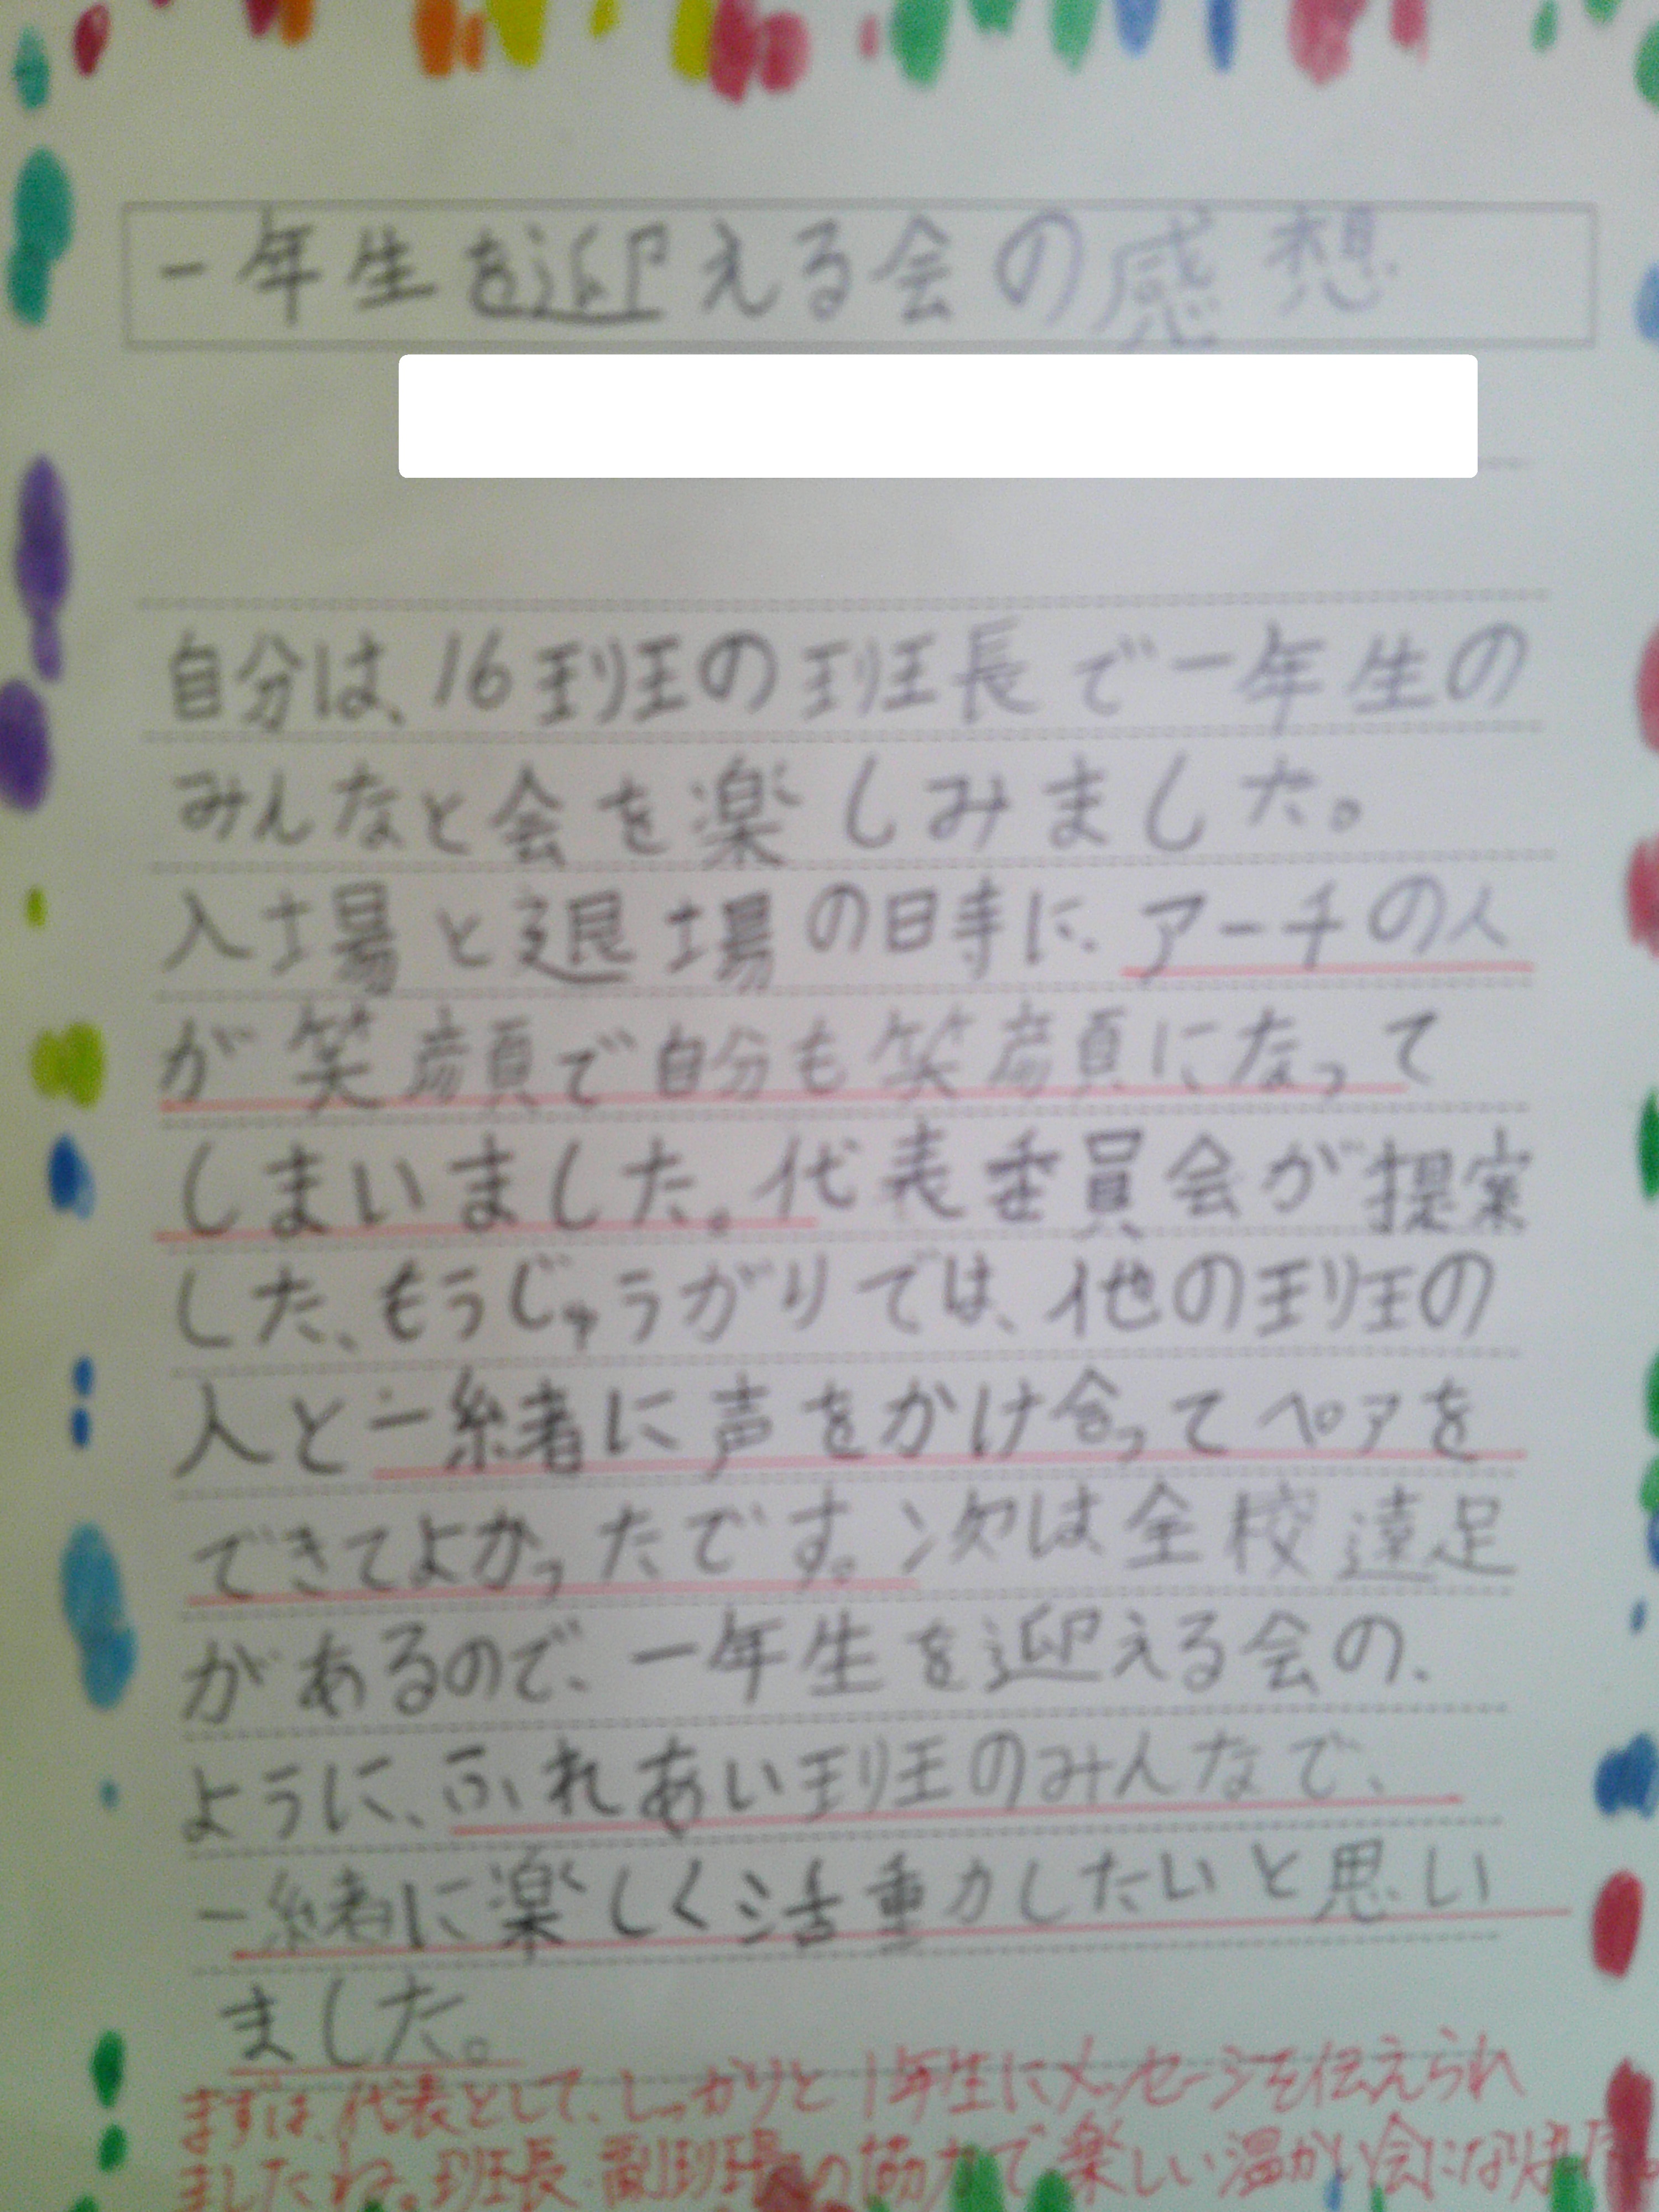 一年生を迎える会の感想
自分は、16班の班長で一年生の
みんなと会を楽しみました。
入場と退場の時に、アーチの人
が笑顔で自分も笑顔になって
しまいました。代表委員会が提案
した、もうじゅうがりでは、他の班の
人と一緒に声をかけ合ってペアを
できてよかったです。次は全校遠足
があるので、一年生を迎える会の、
ように、ふれあい班のみんなで、
一緒に楽しく活動したいと思い
ました。
まずは、代表として、しっかりと1年生にメッセージを伝えられ
ましたね。班長・副班長の協力で楽しい温かい会になりました。